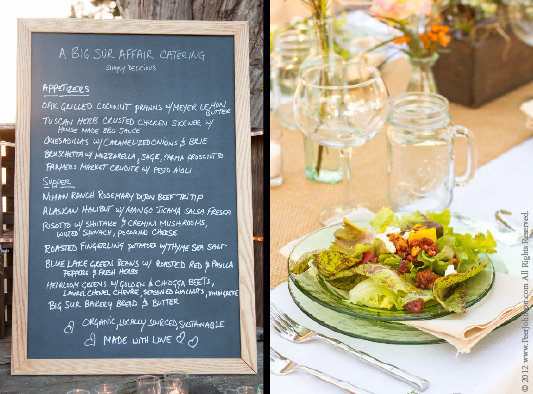 A BIG SUR AFFAIR CATERING
SIMPLY DELICIOUS
APPETIZERS
OAK GRILLED COCONUT PRAWNS W/ MEYER LEMON
BUTTER
TUSCAN HERB CRUSTED CHICKEN SKEWER W/
HOUSE MADE BBQ SAUCE
QUESADILLAS W/ CARAMELIZED ONIONS & BRIE
BRUSCHETTA W/ MOZZARELLA, SAGE, PARMA PROSCIUTTO
FARMERS MARKET CRUDITE W/ PESTO AIOLI
SUPPER
NIMAN RANCH ROSEMARY DIJON BEEF TRI TIP
ALASKAN HALIBUT W/ MANGO JICAMA SALSA FRESCA
RISOTTO W/ SHIITAKE & CREMINI MUSHROOMS,
WILTED SPINACH, PECORINO CHEESE
ROASTED FINGERLING POTATOES W/ THYME SEA SALT
BLUE LAKE GREEN BEANS W/ ROASTED RED & PASILLA
PEPPERS & FRESH HERBS
HEIRLOOM GREENS W/ GOLDEN & CHIOGGA BEETS,
LAUREL CHENEL CHEVRE, SEASONED WALNUTS, VINAIGRETTE
BIG SUR BAKERY BREAD & BUTTER
ORGANIC, LOCALLY SOURCED, SUSTAINABLE
MADE WITH LOVE
© 2012 www.PeerJohnson.com All Rights Reserved.